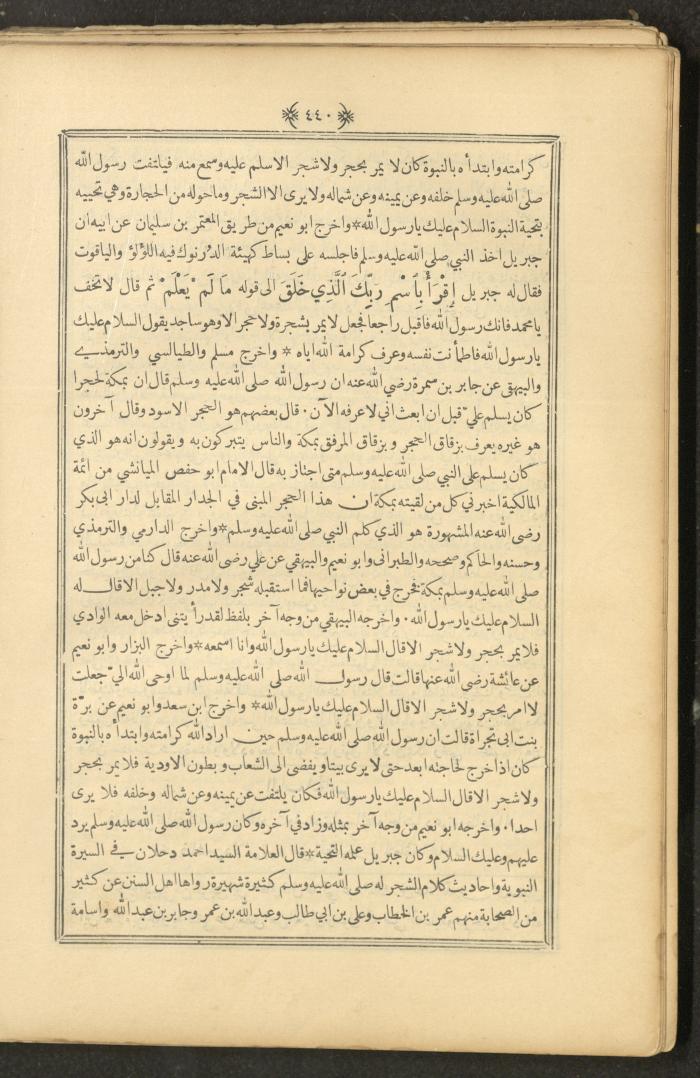 ﴿٤٤٠﴾
كرامته وابتدأه بالنبوة كان لا يمر بحجر ولا شجر الا سلم عليه وسمع منه فيلتفت رسول الله
صلى الله عليه وسلم خلفه وعن يمينه وعن شماله ولا يرى الا الشجر وما حوله من الحجارة وهي تحييه
بتحية النبوة السلام عليك يا رسول الله * واخرج ابو نعيم من طريق المعتمر بن سليمان عن ابيه ان
جبريل اخذ النبي صلى الله عليه وسلم فاجلسه على بساط كهيئة الدرنوك فيه اللؤلؤ والياقوت
فقال له جبريل إِقْرَأْ بِاسْمِ رَبِّكَ الَّذِي خَلَقَ الى قوله مَا لَمْ يَعْلَمْ ثم قال لا تخف
يا محمد فانك رسول الله فاقبل راجعا فجعل لا يمر بشجرة ولا حجر الا وهو ساجد يقول السلام عليك
يا رسول الله فاطمأنت نفسه وعرف كرامة الله اياه * واخرج مسلم والطيالسي والترمذي
والبيهقى عن جابر بن سمرة رضي الله عنه ان رسول الله صلى الله عليه وسلم قال ان بمكة لحجرا
كان يسلم عليّ قبل ان ابعث اني لاعرفه الآن . قال بعضهم هو الحجر الاسود وقال آخرون
هو غيره يعرف بزقاق الحجر وبزقاق المرفق بمكة والناس يتبركون به ويقولون انه هو الذي
كان يسلم على النبي صلى الله عليه وسلم متى اجتاز به قال الامام ابو حفص الميانشي من ائمة
المالكية اخبرني كل من لقيته بمكة ان هذا الحجر المبنى في الجدار المقابل لدار ابى بكر
رضى الله عنه المشهورة هو الذي كلم النبي صلى الله عليه وسلم * واخرج الدارمي والترمذي
وحسنه والحاكم وصححه والطبرانى وابو نعيم والبيهقي عن علي رضى الله عنه قال كنا من رسول الله
صلى الله عليه وسلم بمكة فخرج في بعض نواحيها فما استقبله شجر ولا مدر ولا جبل الا قال له
السلام عليك يا رسول الله . واخرجه البيهقي من وجه آخر بلفظ لقد رأيتنى ادخل معه الوادي
فلا يمر بحجر ولا شجر الا قال السلام عليك يا رسول الله وانا اسمعه * واخرج البزار وابو نعيم
عن عائشة رضى الله عنها قالت قال رسول الله صلى الله عليه وسلم لما اوحى الله اليّ جعلت
لا امر بحجر ولا شجر الا قال السلام عليك يا رسول الله * واخرج ابن سعد وابو نعيم عن برّة
بنت ابى تجراة قالت ان رسول الله صلى الله عليه وسلم حين اراد الله كرامته وابتدأه بالنبوة
كان اذا خرج لحاجته ابعد حتى لا يرى بيتا ويفضى الى الشعاب وبطون الاودية فلا يمر بحجر
ولا شجر الا قال السلام عليك يا رسول الله فكان يلتفت عن يمينه وعن شماله وخلفه فلا يرى
احدا . واخرجه ابو نعيم من وجه آخر بمثله وزاد في آخره وكان رسول الله صلى الله عليه وسلم يرد
عليهم وعليك السلام وكان جبريل علمه التحية * قال العلامة السيد احمد دحلان في السيرة
النبوية واحاديث كلام الشجر له صلى الله عليه وسلم كثيرة شهيرة رواها اهل السنن عن كثير
من الصحابة منهم عمر بن الخطاب وعلى بن ابي طالب وعبد الله بن عمر وجابر بن عبد الله واسامة